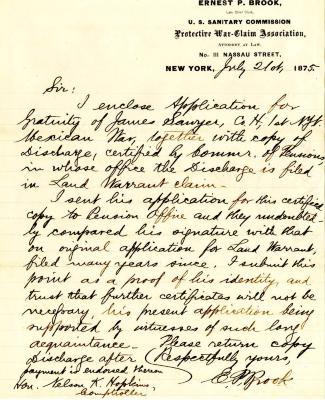 ERNEST P. BROOK,
U. S. SANITARY COMMISSION
Protective War-Claim Association,
ATTORNEY AT LAW,
No. 111 NASSAU STREET,
NEW YORK, July 21st, 1875.
Sir:
I enclose Application for
Gratuity of James Sawyer, Co. H, 1st N.Y.
Mexican War, together with copy of
Discharge, certified by Commr. of Pensions
in whose office the Discharge is filed
in Land Warrant claim—
I sent his application for this certified
copy to Pension Office and they undoubted
ly compared his signature with that
on original application for Land Warrant,
filed many years since. I submit this
point as a proof of his identity, and
trust that further certificates will not be
necessary, his present application being
supported by witnesses of such long
acquaintance— Please return copy
Discharge after Respectfully yours,
payment is endorsed thereon
E. P. Brook
Hon. Nelson K. Hopkins,
Comptroller